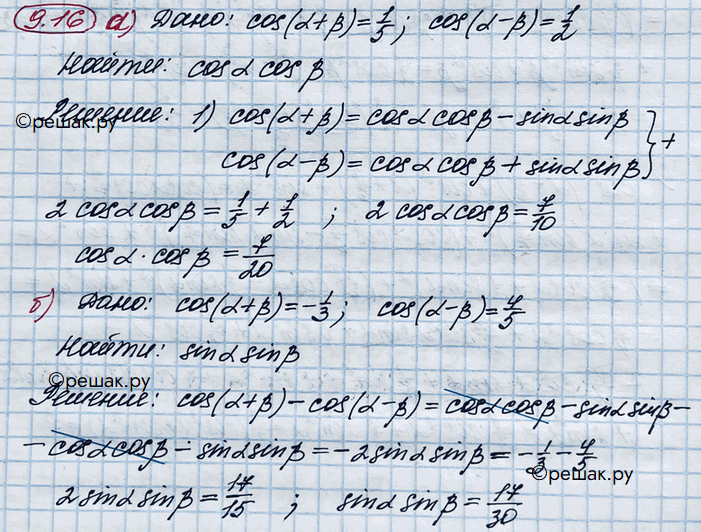 9.16 а) Дано: cos(α+β)=1/5; cos(α-β)=1/2
Найти: cosα cosβ
Решение: 1) cos(α+β)=cosα cosβ-sinα sinβ
©решак.ру
cos(α-β)=cosα cosβ+sinα sinβ } +
2 cosα cosβ=1/5+1/2 ; 2 cosα cosβ=7/10
cosα·cosβ=7/20
б) Дано: cos(α+β)=-1/3; cos(α-β)=4/5
Найти: sinα sinβ
©решак.ру
Решение: cos(α+β)-cos(α-β)=cosα cosβ-sinα sinβ-
-cosα cosβ-sinα sinβ=-2sinα sinβ=-1/3-4/5
©решак.ру
2sinα sinβ=17/15 ; sinα sinβ=17/30